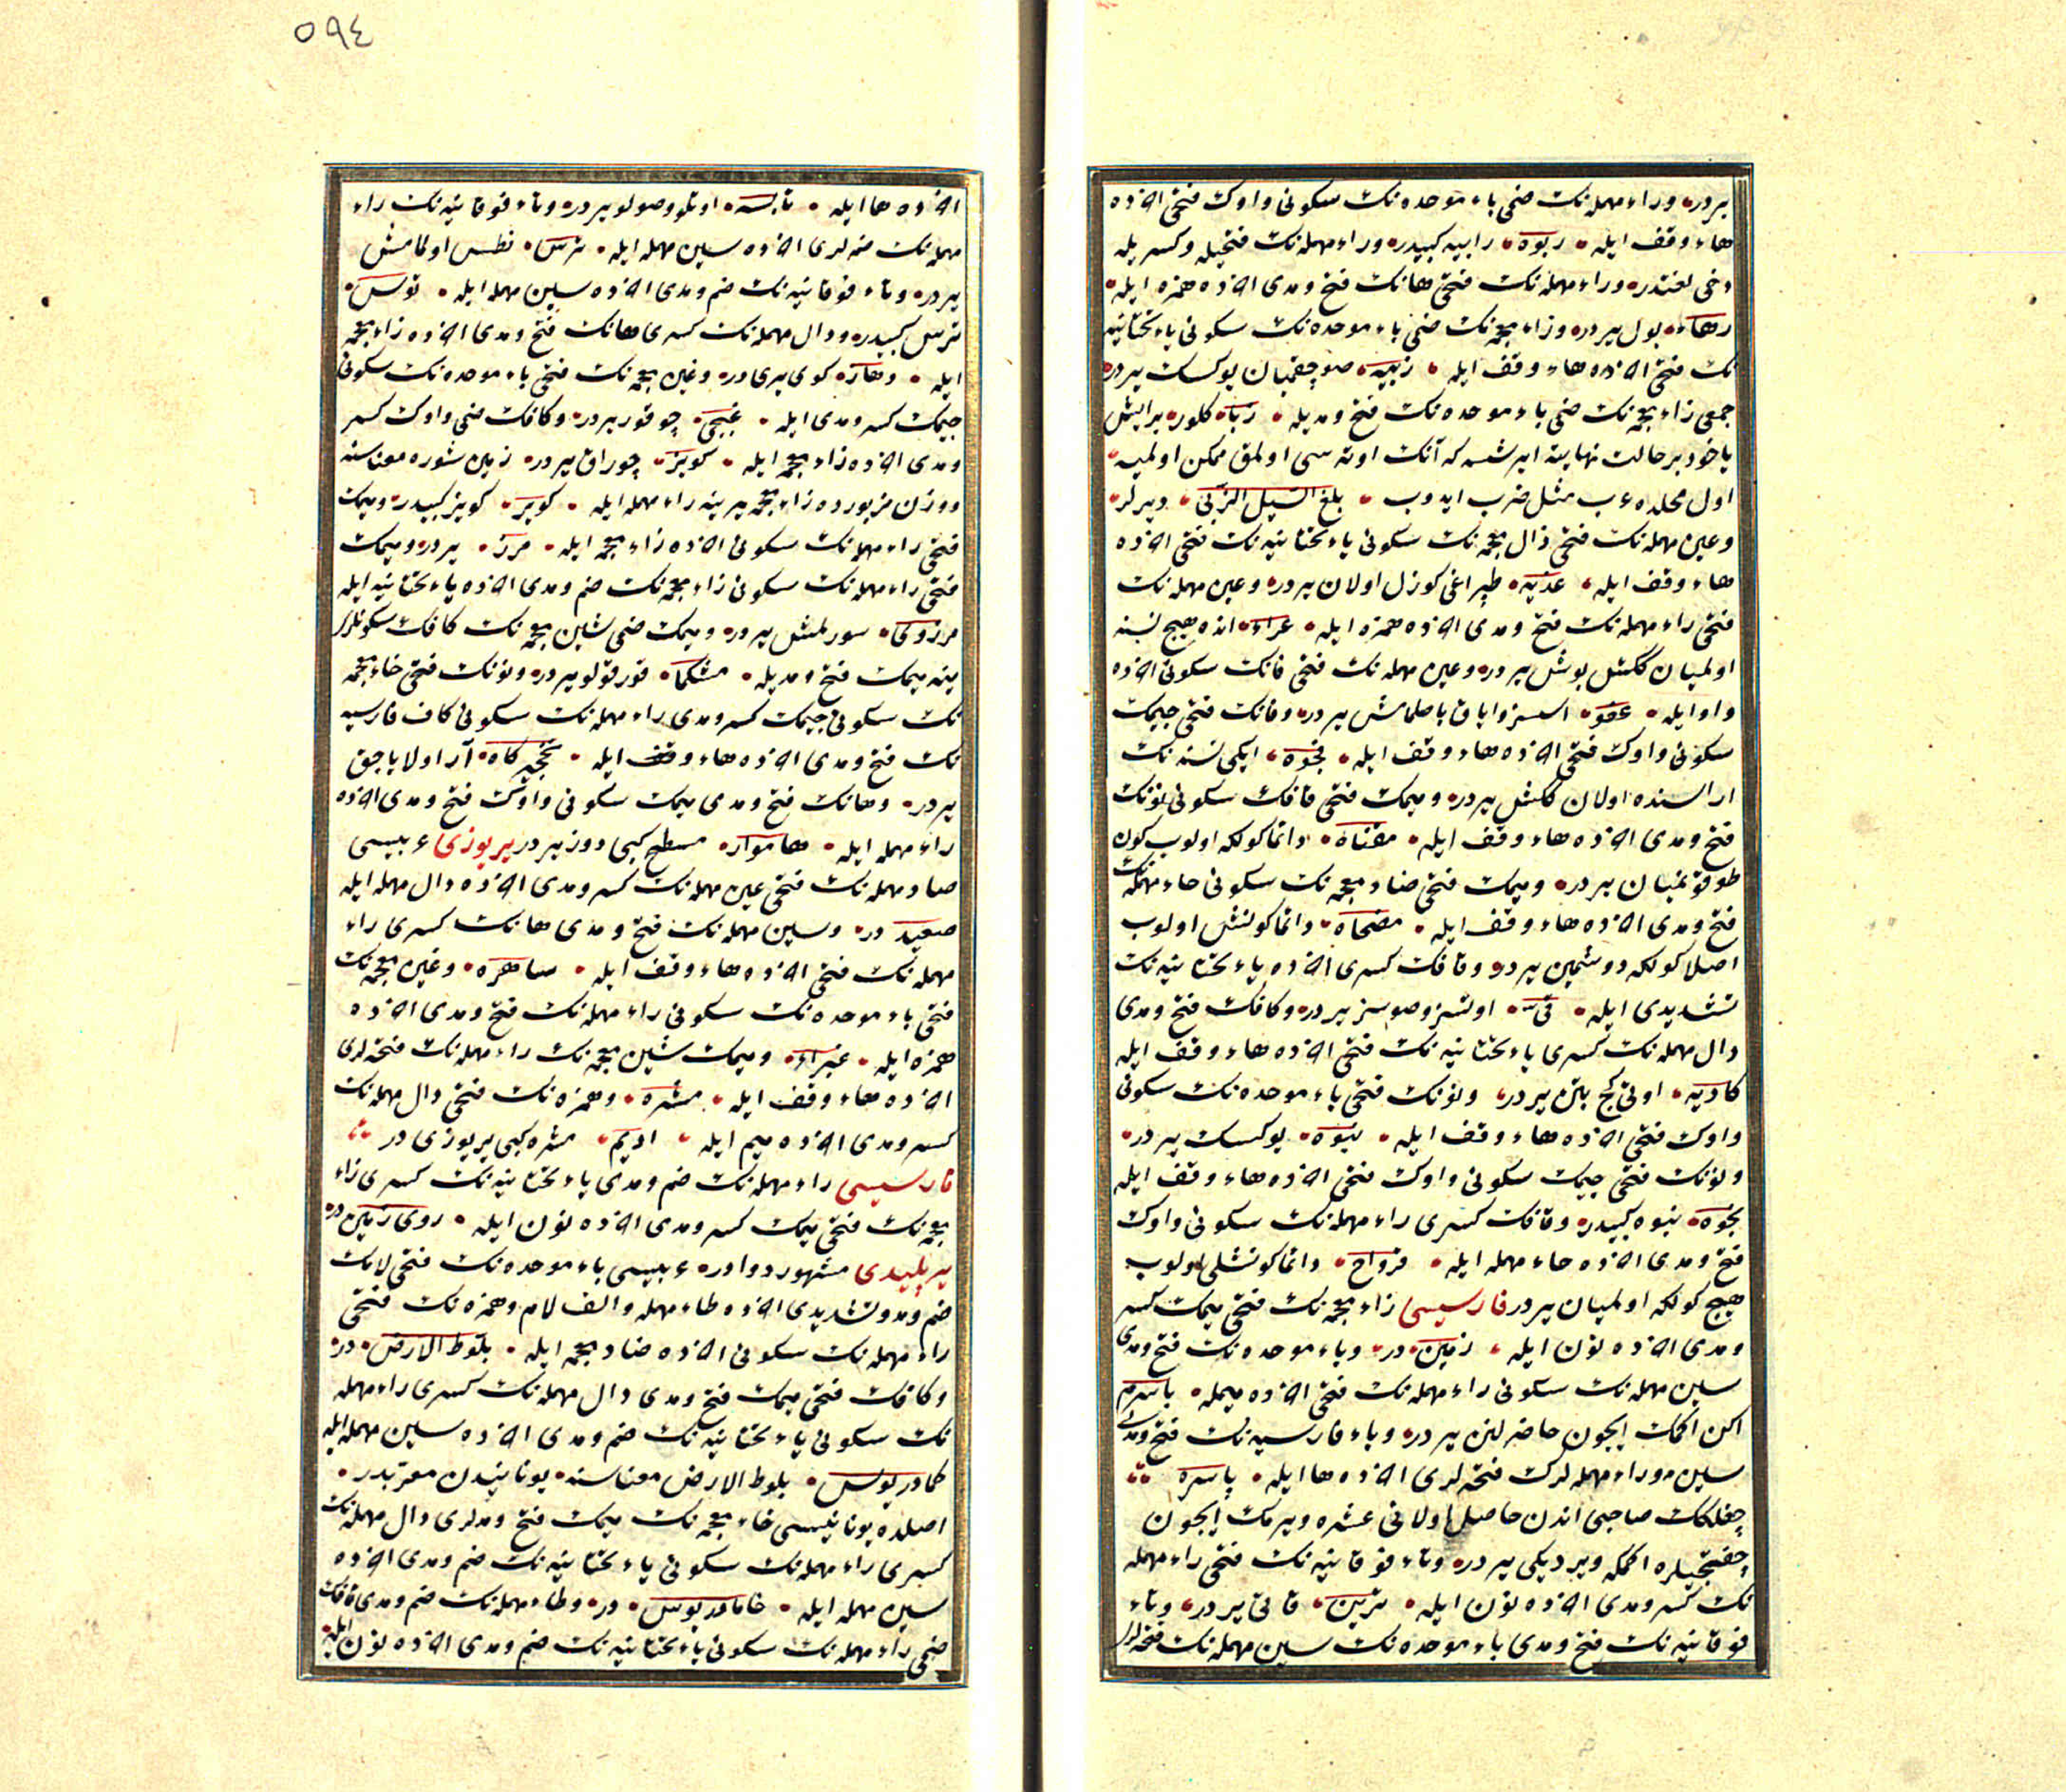 يردر وراء مهمله‌نك ضمى باء موحده‌نك سكونى واوك فتحى اخرده
هاء وقف ايله ربوة رابيه كبيدر وراء مهمله‌نك فتحيله وكسريله
دخى لغتدر وراء مهمله‌نك فتحى هانك فتح ومدى اخرده همزه ايله
رهاء بول يردر وزاء معجمه‌نك ضمى باء موحده‌نك سكونى ياء تحتانيه
نك فتحى اخرده هاء وقف ايله زبية صو چقميان يوكسك يردر
جمعى زاء معجمه‌نك ضمى باء موحده‌نك فتح ومديله زباه كلور بر ايش
ياخود بر حالت نهايته ايرشسه كه آنك اوته سى اولمق ممكن اولميه
اول محلده عرب مثل ضرب ايدوب بلغ السيل الزبى ديرلر
وعين مهمله‌نك فتحى ذال معجمه‌نك سكونى ياء تحتانيه‌نك فتحى اخرده
هاء وقف ايله عذية طپراغى كوزل اولان يردر وعين مهمله‌نك
فتحى راء مهمله‌نك فتح ومدى اخرده همزه ايله عراء انده هيچ نسنه
اولميان ككش بوش يردر وعين مهمله‌نك فتحى فانك سكونى اخرده
واو ايله عفو اسسز واياق باصلمامش يردر وفانك فتحى جيمك
سكونى واوك فتحى اخرده هاء وقف ايله فجوة ايكى نسنه‌نك
اراسنده اولان ككش يردر وميمك فتحى قافك سكونى نونك
فتح ومدى اخرده هاء وقف ايله مقناة دائما كولكه اولوب كون
طوقونميان يردر وميمك فتحى ضاد معجمه‌نك سكونى حاء مهمله‌نك
فتح ومدى اخرده هاء وقف ايله مضحاة دائما كونش اولوب
اصلا كولكه دوشمين يردر وقافك كسرى اخرده ياء تحتانيه‌نك
تشديدى ايله قى اوتسز وصوسز يردر وكافك فتح ومدى
دال مهمله‌نك كسرى ياء تحتانيه‌نك فتحى اخرده هاء وقف ايله
كادية اوتى كج بتن يردر ونونك فتحى باء موحده‌نك سكونى
واوك فتحى اخرده هاء وقف ايله نبوة يوكسك يردر
ونونك فتحى جيمك سكونى واوك فتحى اخرده هاء وقف ايله
نجوة نبوه كبيدر وقافك كسرى راء مهمله‌نك سكونى واوك
فتح ومدى اخرده حاء مهمله ايله قرواح دائما كونشلى اولوب
هيچ كولكه اولميان يردر فارسيسى زاء معجمه‌نك فتحى ميمك كسر
ومدى اخرده نون ايله زمين در وباء موحده‌نك فتح ومدى
سين مهمله‌نك سكونى راء مهمله‌نك فتحى اخرده ميمله باسرم
اكن اكمك ايچون حاضرلنن يردر وباء فارسيه‌نك فتح ومدى
سين وراء مهمله‌لرك فتحه‌لرى اخرده ها ايله پاسره
چفلكك صاحبى اندن حاصل اولانى عشره ويرمك ايچون
چفتجيلره اكمكه ويرديكى يردر وتاء فوقانيه‌نك فتحى راء مهمله
نك كسر ومدى اخرده نون ايله ترين قاتى يردر وتاء
فوقانيه‌نك فتح ومدى باء موحده‌نك سين مهمله‌نك فتحه‌لرى
٥٩٤
اخرده ها ايله تابسه اوتلو وصولو يردر وتاء فوقانيه‌نك راء
مهمله‌نك ضمه‌لرى اخرده سين مهمله ايله ترس نطس اولمامش
يردر وتاء فوقانيه‌نك ضم ومدى اخرده سين مهمله ايله توس
ترس كبيدر ودال مهمله‌نك كسرى هانك فتح ومدى اخرده زاء معجمه
ايله دهاز كوى يرى در وغين معجمه‌نك فتحى باء موحده‌نك سكونى
جيمك كسر ومدى ايله غبجى چوقور يردر وكافك ضمى واوك كسر
ومدى اخرده زاء معجمه ايله كويز چوراق يردر زمين شوره معناسنه
ووزن مزبورده زاء معجمه يرينه راء مهمله ايله كوير كويز كبيدر وميمك
فتحى راء مهمله‌نك سكونى اخرده زاء معجمه ايله مرز يردر وميمك
فتحى راء مهمله‌نك سكونى زاء معجمه‌نك ضم ومدى اخرده ياء تحتانيه ايله
مرزوى سورلمش يردر وميمك ضمى شين معجمه‌نك كافك سكونلرى
ينه ميمك فتح ومديله مشكما قورقولو يردر ونونك فتحى خاء معجمه
نك سكونى جيمك كسر ومدى راء مهمله‌نك سكونى كاف فارسيه
نك فتح ومدى اخرده هاء وقف ايله نخجيركاه آو اولاياجق
يردر وهانك فتح ومدى ميمك سكونى واوك فتح ومدى اخرده
راء مهمله ايله هاموار مسطح كبى دوز يردر ير يوزى عربيسى
صاد مهمله‌نك فتحى عين مهمله‌نك كسر ومدى اخرده دال مهمله ايله
صعيد در وسين مهمله‌نك فتح ومدى هانك كسرى راء
مهمله‌نك فتحى اخرده هاء وقف ايله ساهرة وغين معجمه‌نك
فتحى باء موحده‌نك سكونى راء مهمله‌نك فتح ومدى اخرده
همزه ايله غبراء وميمك شين معجمه‌نك راء مهمله‌نك فتحه‌لرى
اخرده هاء وقف ايله مشرة وهمزه‌نك فتحى دال مهمله‌نك
كسر ومدى اخرده ميم ايله اديم مشره كبى ير يوزى در
فارسيسى راء مهمله‌نك ضم ومدى ياء تحتانيه‌نك كسرى زاء
معجمه‌نك فتحى ميمك كسر ومدى اخرده نون ايله روى زمين در
ير پليدى مشهور دوادر عربيسى باء موحده‌نك فتحى لامك
ضم ومد وتشديدى اخرده طاء مهمله والف لام وهمزه‌نك فتحى
راء مهمله‌نك سكونى اخرده ضاد معجمه ايله بلوط الارض در
وكافك فتحى ميمك فتح ومدى دال مهمله‌نك كسرى راء مهمله
نك سكونى ياء تحتانيه‌نك ضم ومدى اخرده سين مهمله ايله
كمادريوس بلوط الارض معناسنه يونانيدن معربدر
اصلده يونانيسى خاء معجمه‌نك ميمك فتح ومدلرى دال مهمله‌نك
كسرى راء مهمله‌نك سكونى ياء تحتانيه‌نك ضم ومدى اخرده
سين مهمله ايله خامادريوس در وطاء مهمله‌نك ضم ومدى قافك
ضمى راء مهمله‌نك سكونى ياء تحتانيه‌نك ضم ومدى اخرده نون ايله